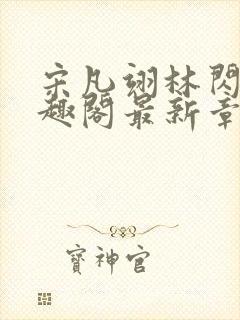 宋凡翊林閃
趣閣最新章
寶神官